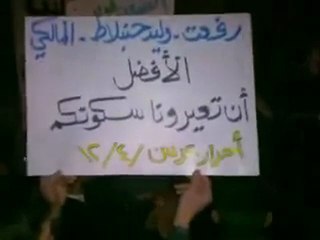 رفعت - وليد جنبلاط - المالكي
الأفضل
أن تعيرونا سكوتكم
أحرار عرمن ١٢/٤/